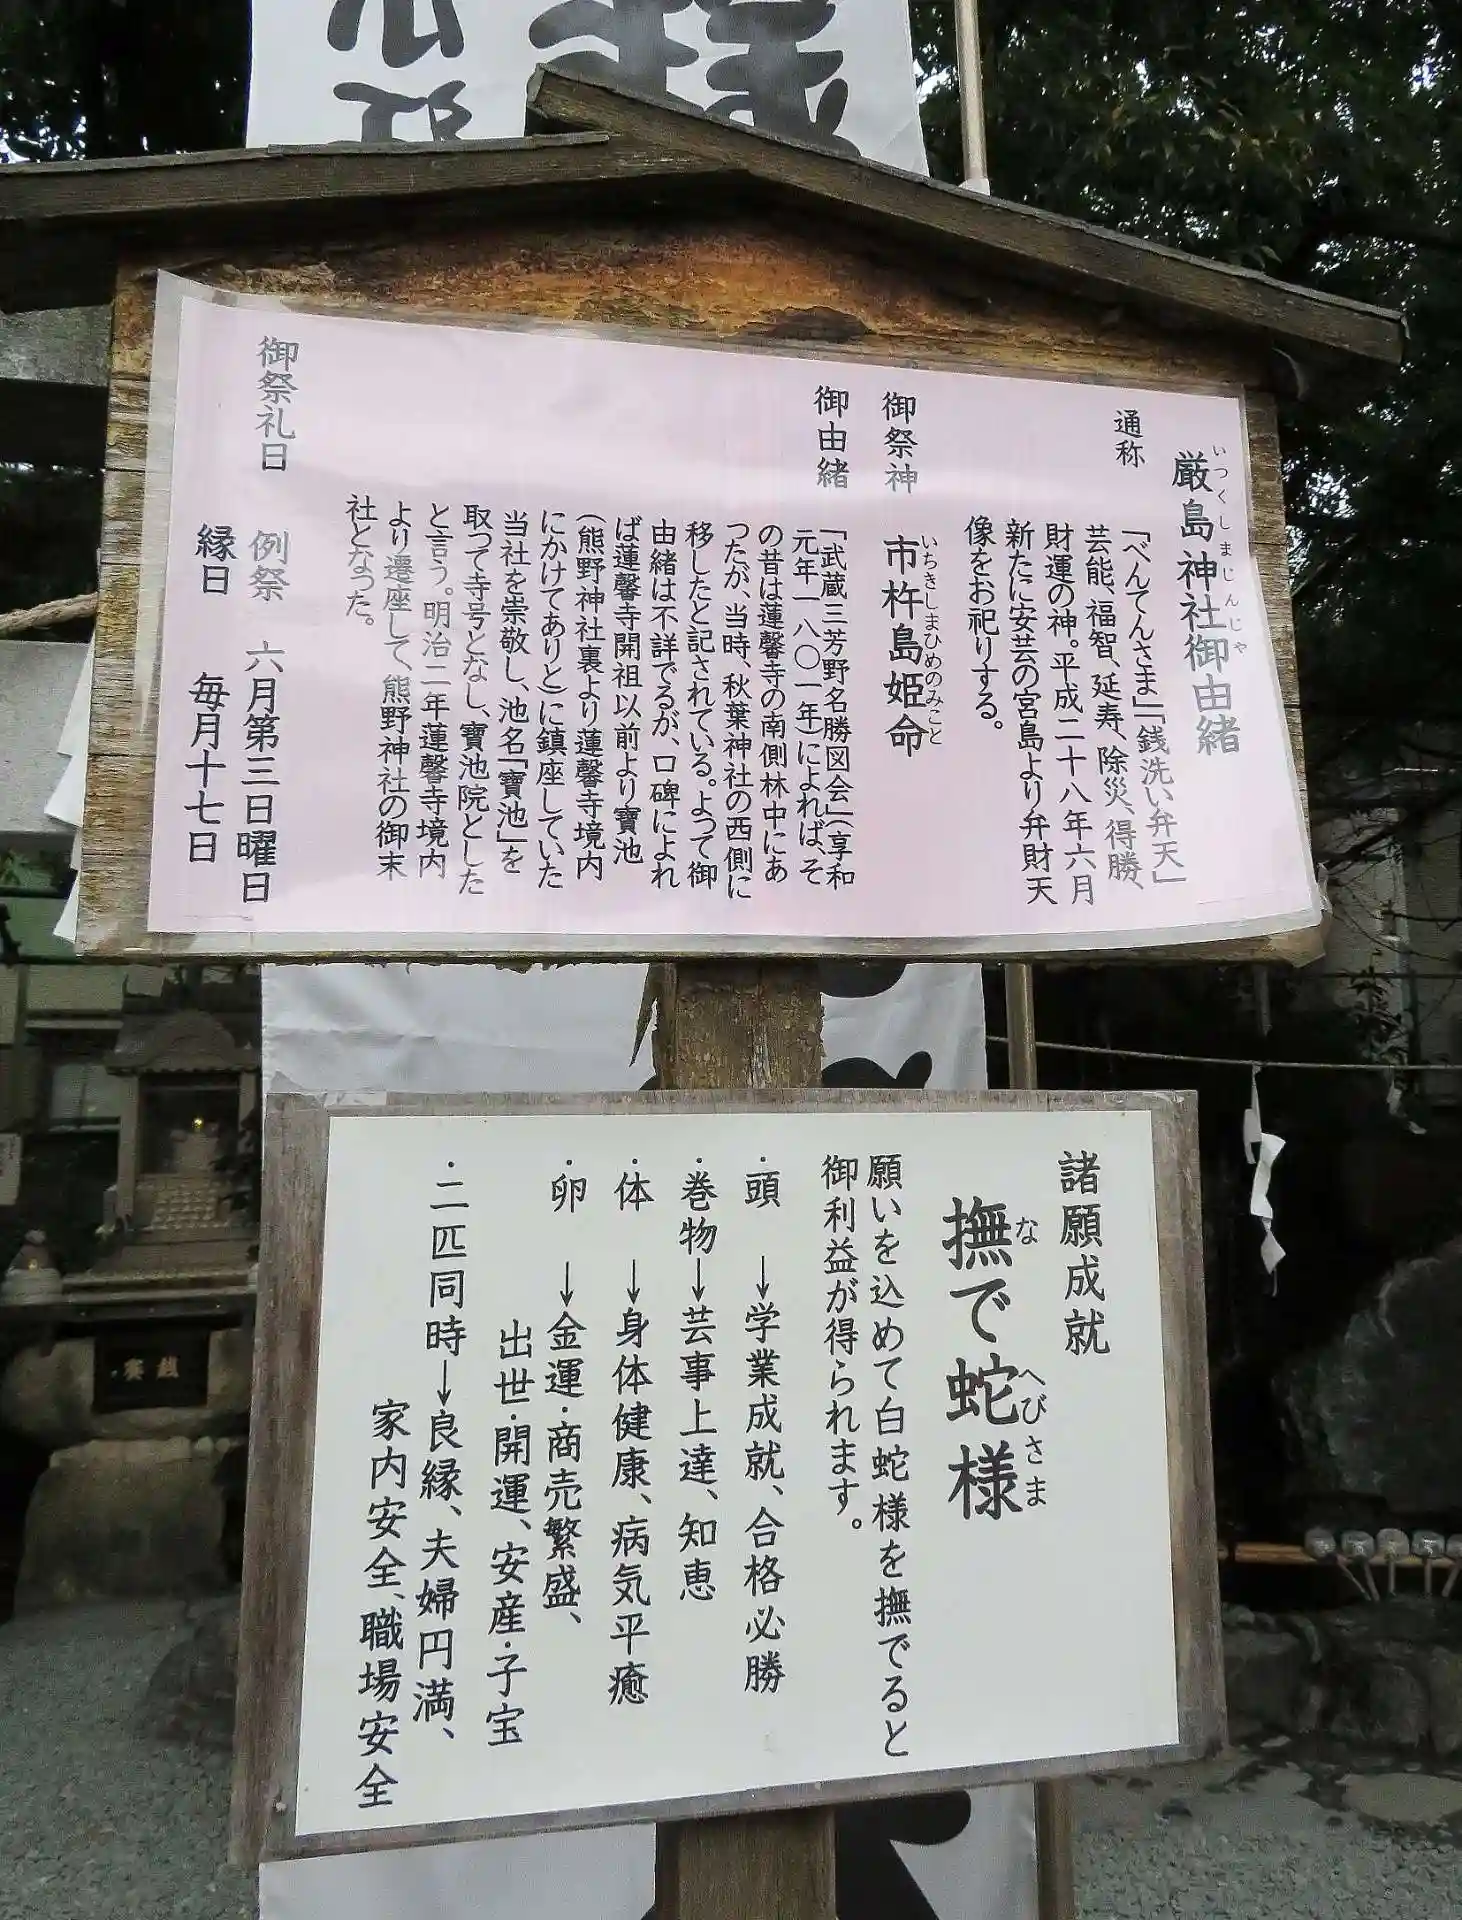 厳島神社御由緒
いつくしまじんじゃ
通称
「べんてんさま」「銭洗い弁天」
芸能、福智、延寿、除災、得勝、
財運の神。平成二十八年六月
新たに安芸の宮島より弁財天
像をお祀りする。
御祭神
市杵島姫命
いちきしまひめのみこと
御由緒
「武蔵三芳野名勝図会」(享和
元年一八〇一年)によれば、そ
の昔は蓮馨寺の南側林中にあ
ったが、当時、秋葉神社の西側に
移したと記されている。よって御
由緒は不詳でるが、口碑によれ
ば蓮馨寺開祖以前より寶池
(熊野神社裏より蓮馨寺境内
にかけてありと)に鎮座していた
当社を崇敬し、池名「寶池」を
取って寺号となし、寶池院とした
と言う。明治二年蓮馨寺境内
より遷座して、熊野神社の御末
社となった。
御祭礼日
例祭 六月第三日曜日
縁日 毎月十七日
諸願成就
撫で蛇様
な へびさま
願いを込めて白蛇様を撫でると
御利益が得られます。
・頭 →学業成就、合格必勝
・巻物→芸事上達、知恵
・体 →身体健康、病気平癒
・卵 →金運・商売繁盛、
出世・開運、安産・子宝
・二匹同時→良縁、夫婦円満、
家内安全、職場安全